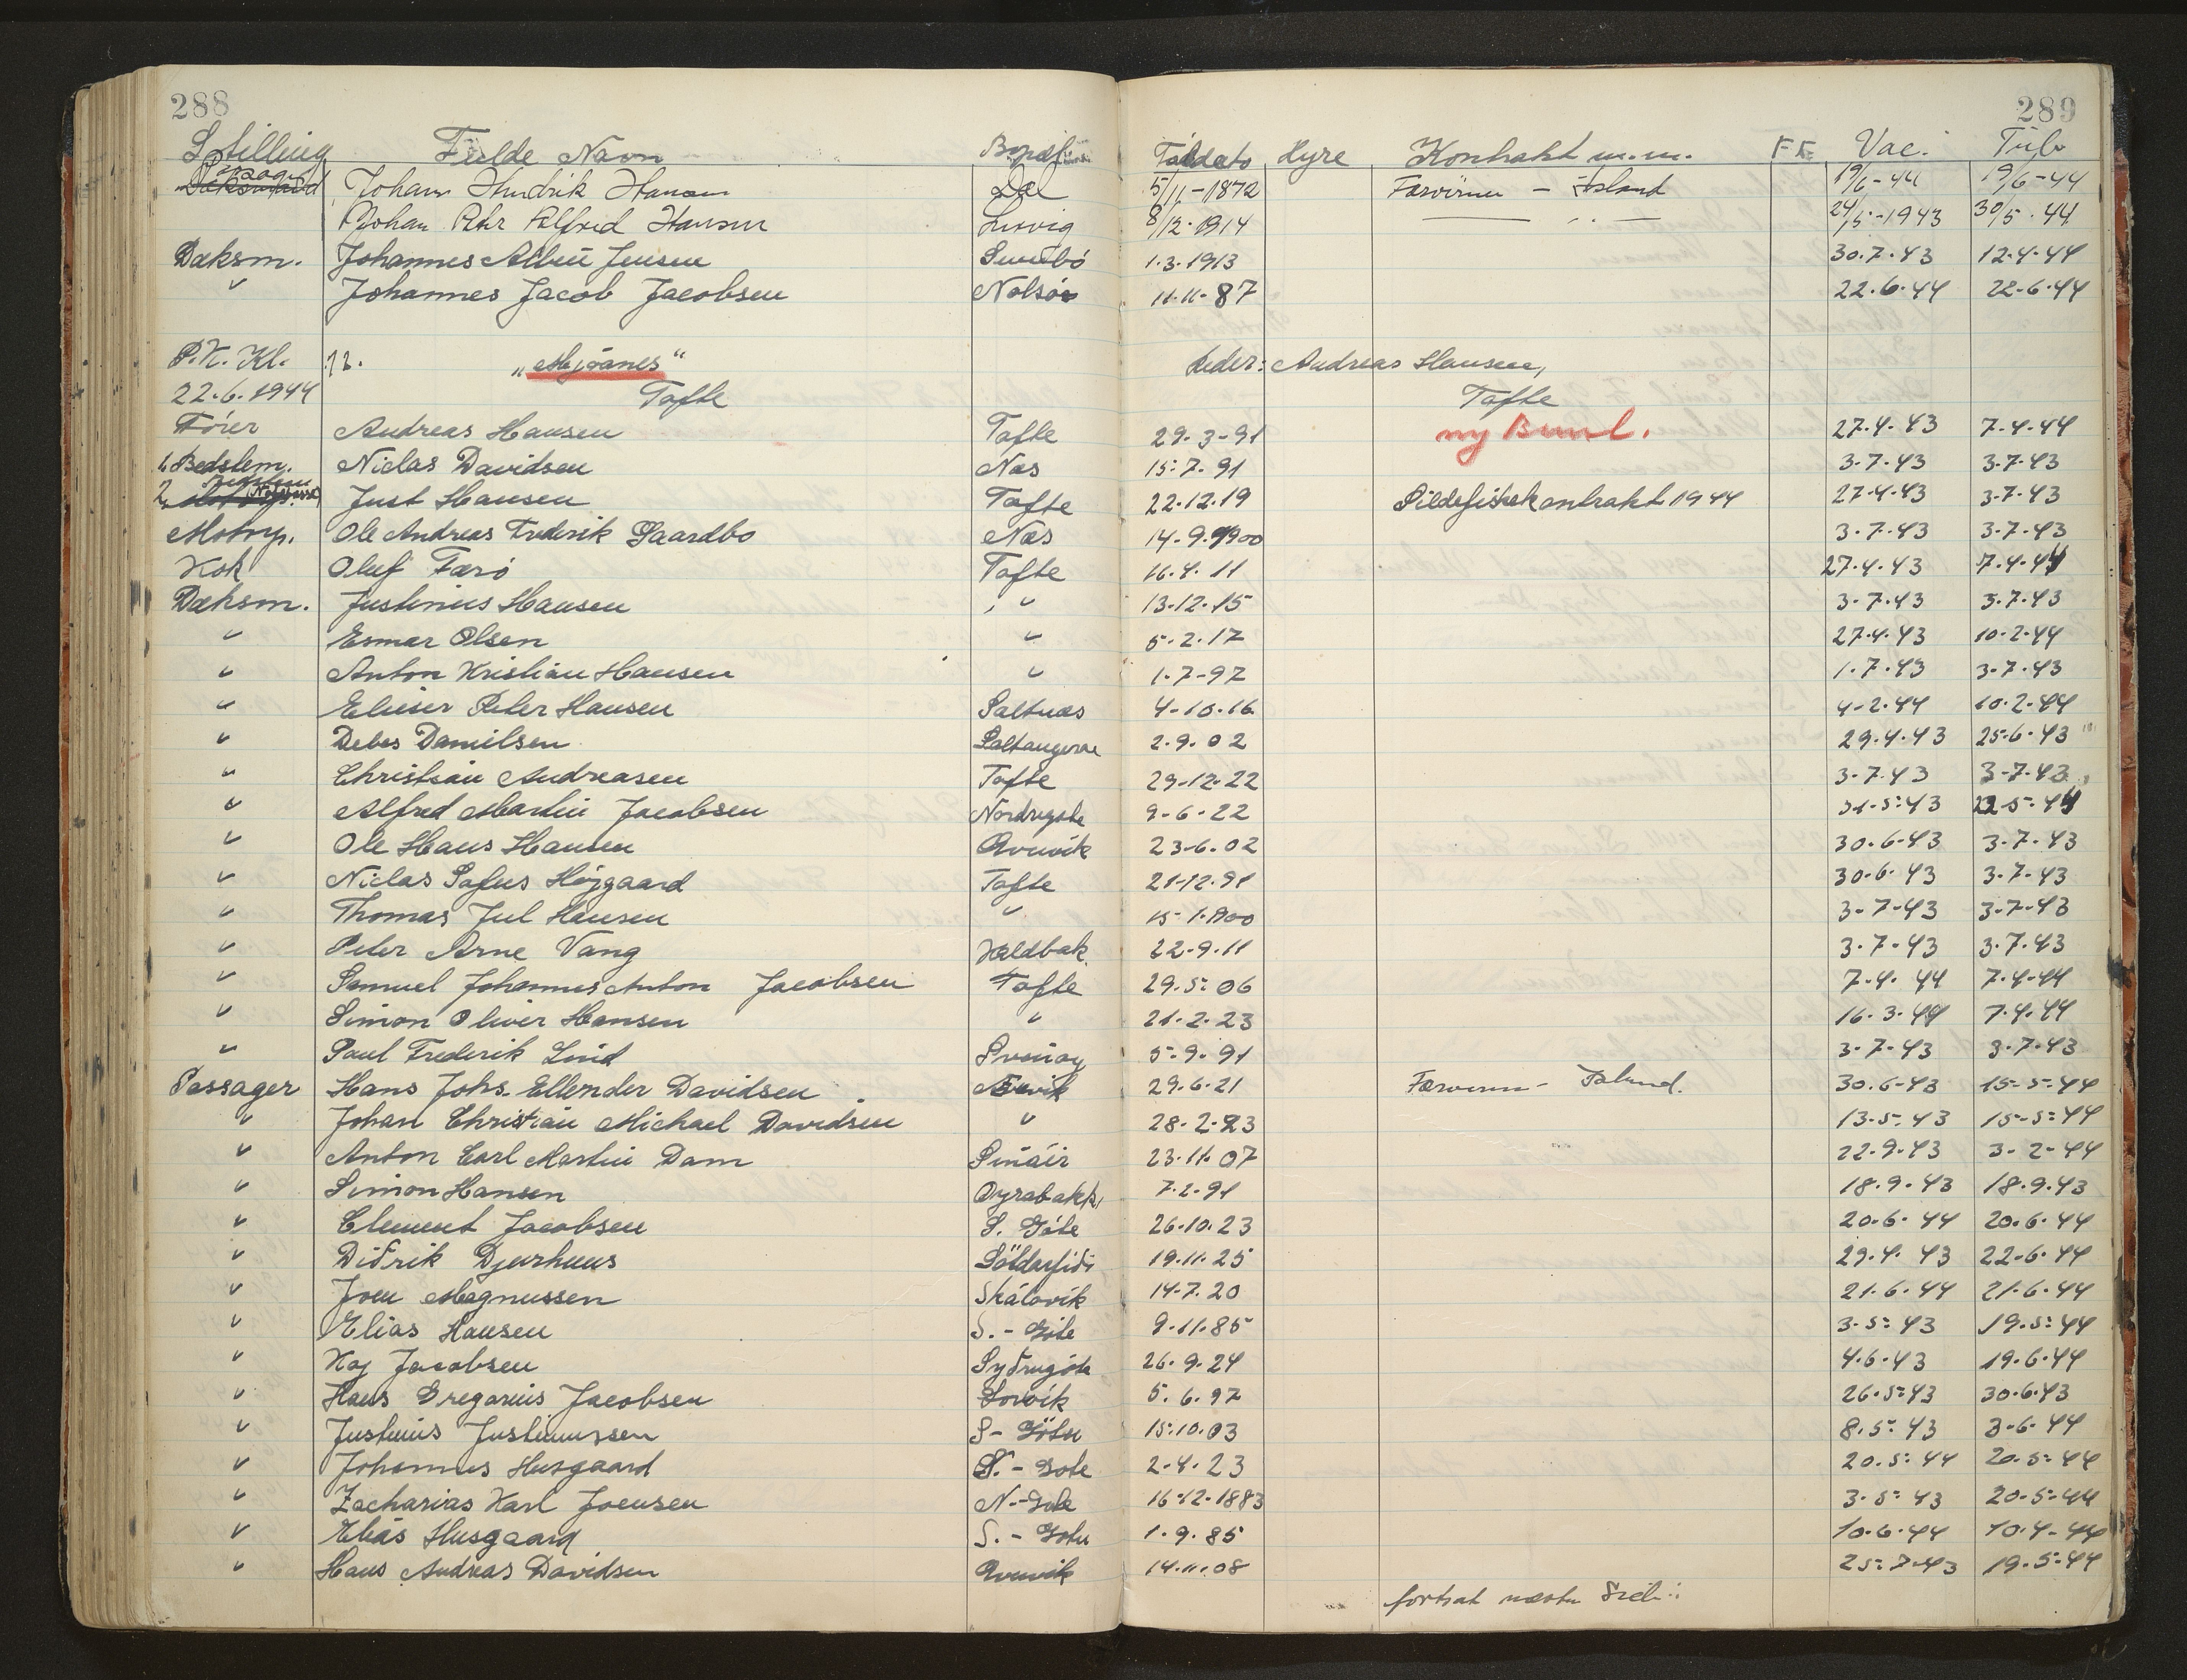 288 289
Stilling Fulde Navn Bopæl Föddato Hyre Kontrakt m.m. FF Vac. Tub.
Passager Johan Hendrik Hansen Dal 5/11-1872 Færöerne - Island 19/6-44 19/6-44
Johan Petr Alfred Hansen Lervig 8/12-1914 24/5-1943 30/5-44
Dæksm. Johannes Albin Jensen Sumbö 1.3.1913 30.7.43 12.4.44
" Johannes Jacob Jacobsen Nolsö 11.11.87 22.6.44 22-6-44
P.K. Kl. 12. "Mjóanes" Reder: Andreas Hansen,
22.6.1944 Tofte Tofte
Förer Andreas Hansen Tofte 29.3-91 ny 27.4.43 7-4-44
1. Bedstem. Niclas Davidsen Næs 15.7.91 3.7.43 3.7.43
2. Just Hansen Tofte 22.12.19 Sildefiskekontrakt 1944 27.4.43 3.7.43
Motorp. Ole Andreas Frederik Gaardbo Næs 14.9.1900 3.7.43 3.7.43
Kok Oluf Færö Tofte 16.4.11 27.4.43 7.4.44
Dæksm. Justinius Hansen " 13.12.15 3.7.43 3.7.43
" Esmar Olsen " 5.2.17 27.4.43 10.2.44
" Anton Kristian Hansen " 1.7-97 1.7.43 3.7.43
" Elieser Peter Hansen Saltnæs 4-10.16 4-2.44 10.2.44
" Debes Danielsen Saltangerne 2.9.02 29.4.43 25.6.43
" Christian Andreasen Tofte 29-12-22 3.7.43 3-7.43
" Alfred Martin Jacobsen Nordregöte 9-6-22 31-5.43 22-5.44
" Ole Hans Hansen Arnvik 23-6.02 30.6-43 3.7.43
" Niclas Sofus Højgaard Tofte 21-12.91 30.6.43 3.7.43
" Thomas Jul Hansen " 15-1.1900 3-7-43 3-7-43
" Peter Arne Vang Haldbak. 22-9.11 3.7.43 3.7.43
" Samuel Johannes Anton Jacobsen Tofte 29.5.06 7.4.44 7.4.44
" Simon Oliver Hansen " 21.2.23 16.3.44 7.4.44
" Paul Frederik Lind Svinoy 5-9.91 3.7.43 3.7.43
Passager Hans Johs. Ellender Davidsen 29.6.21 Færöerne - Island. 30.6-43 15-5.44
" Johan Christian Michael Davidsen " 28.2.23 13.5.43 15-5.44
" Anton Carl Martin Dam 23.11.07 22.9.43 3-2-44
" Simon Hansen Oyrabakk. 7.2.91 18.9.43 18.9.43
" Clement Jacobsen S. Göte 26.10.23 20.6.44 20.6.44
" Diðrik Djurhuus Söldarfirði 19.11.25 29.4.43 22.6.44
" Joen Magnussen Skálavík 14.7.20 21.6.44 21.6.44
" Elias Hansen S.- Göte 9.11.85 3.5.43 19.5.44
" Kaj Jacobsen Syðrugöta 26.9.24 4.6.43 19.6.44
" Hans Gregarius Jacobsen Lorvík 5.6.97 26.5.43 30.6.43
" Justinus Justinussen S- Götu 15.10.03 8.5.43 3-6-44
" Johannes Husgaard N.- Göte 2.4.23 20.5.44 20.5.44
" Zacharias Karl Joensen N.-Göte 16.12.1883 3.5.43 20-5.44
" Elias Husgaard S.- Götu 1.9.85 10.6.44 10.4.44
" Hans Andreas Davidsen Arnvik 14.11.08 25.7.43 19.5.44
fortsat næste Side: